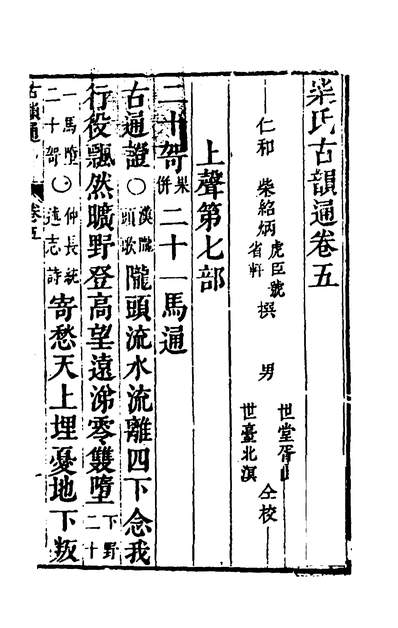 柴氏古韻通卷五
仁和 柴紹炳虎臣號省軒撰 男 世堂胥山 世臺北溟 仝校
上聲第七部
二十哿果併二十一馬通
古通證○漢隴頭歌隴頭流水流離四下念我
行役飄然曠野登高望遠涕零雙墮下野二十
一馬墮二十哿○仲長統述志詩寄愁天上埋憂地下叛
古韻通 卷五